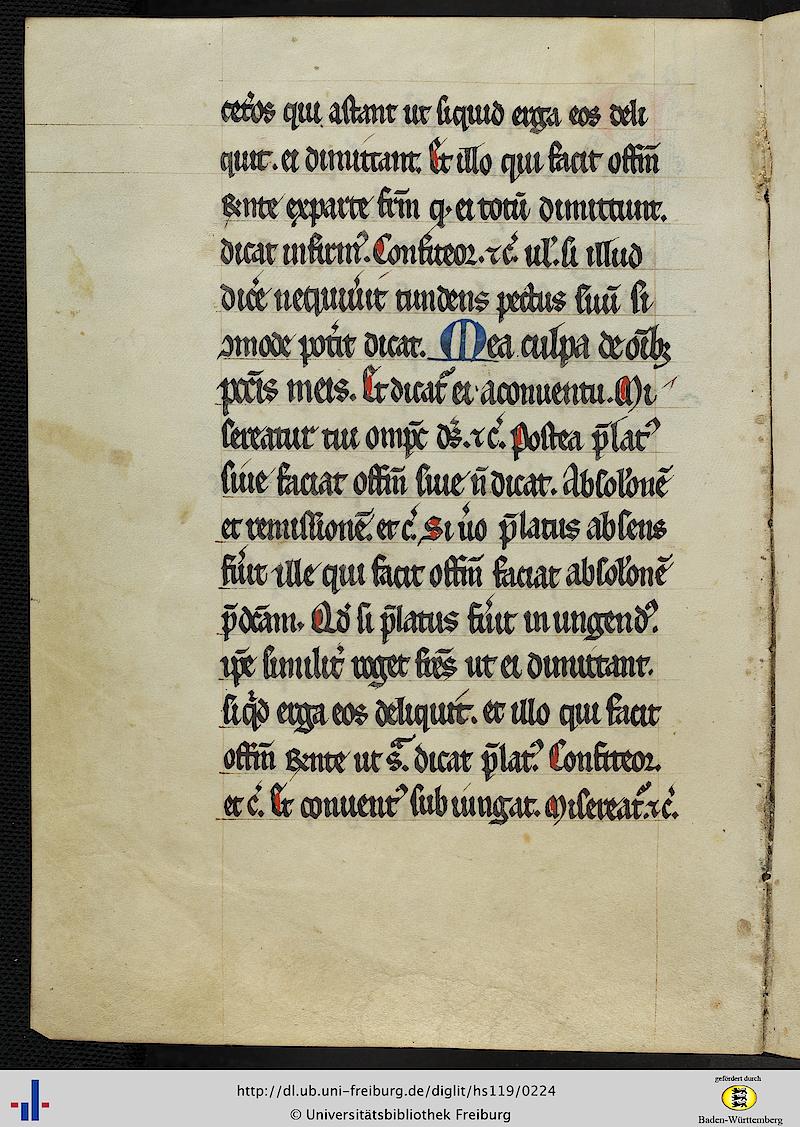 cet͛os qui astant ut siquid erga eos deli
quit. ei dimittant. Et illo qui facit offm̅
R̅nte exparte frm̅ qꝫ ei totu̅ dimittunt.
dicat infirmꝰ. Confiteor. ⁊ c͛. ul̛. si illud
dic̛e nequiưit tundens pectus suu̅ si
ꝯmode pot̛it dicat. Mea culpa de oi̅bꝫ
pcc̅is meis. Et dicat᷑ ei aconuentu. Mi
sereatur tui omp̅c ds̅. ⁊ c͛. Postea p̅latꝰ
siue faciat offm̅ siue n̅ dicat. Absoloue̅
et remissione̅. et c͛. Si ưo p̅latus absens
fưit ille qui facit offm̅ faciat absoloue̅
p̅dc̅am. Qd̛ si p̅latus fưit in ungendꝰ.
ip̅e similit̛ roget fr̅es ut ei dimittant.
siqͥd erga eos deliquit. et illo qui facit
offm̅ R̅nte ut sᷓ. dicat p̅latꝰ. Confiteor.
et c͛. Et conuentꝰ subiungat. Misereat᷑. ⁊ c͛.
http://dl.ub.uni-freiburg.de/diglit/hs119/0224
© Universitätsbibliothek Freiburg
gefördert durch
Baden-Württemberg